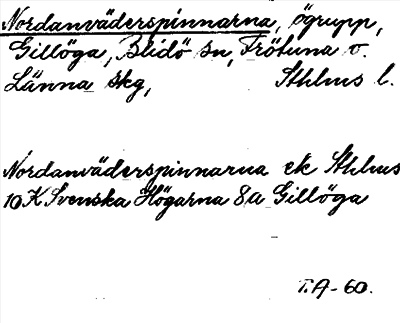 Nordanväderspinnarna, ögrupp,
Gillöga, Blidö sn, Frötuna o.
Länna skg, Sthlms l.
Nordanväderspinnarna ek Sthlms
10K Svenska Högarna 8a Gillöga
T.A-60.